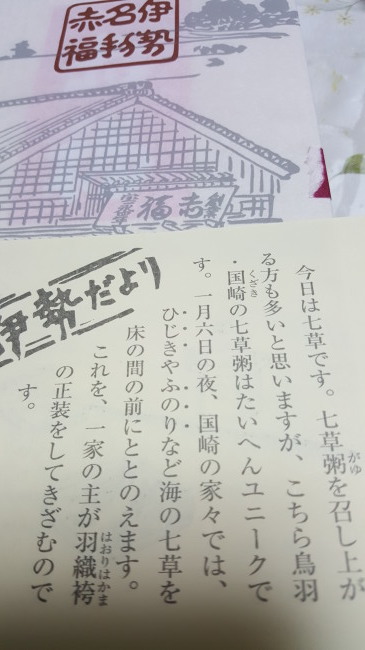 伊勢
名物
赤福
赤福
伊勢だより
今日は七草です。七草粥を召し上が
る方も多いと思いますが、こちら鳥羽
・国崎の七草粥はたいへんユニークで
す。一月六日の夜、国崎の家々では、
ひじきやふのりなど海の七草を
床の間の前にととのえます。
これを、一家の主が羽織袴
の正装をしてきざむので
す。